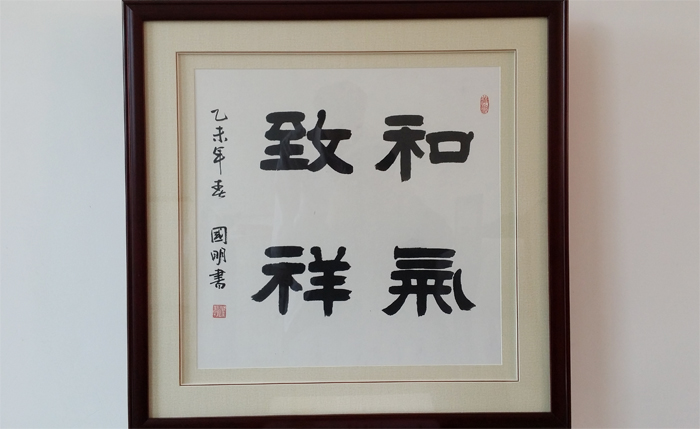 和氣
致祥
乙未年春 國明書